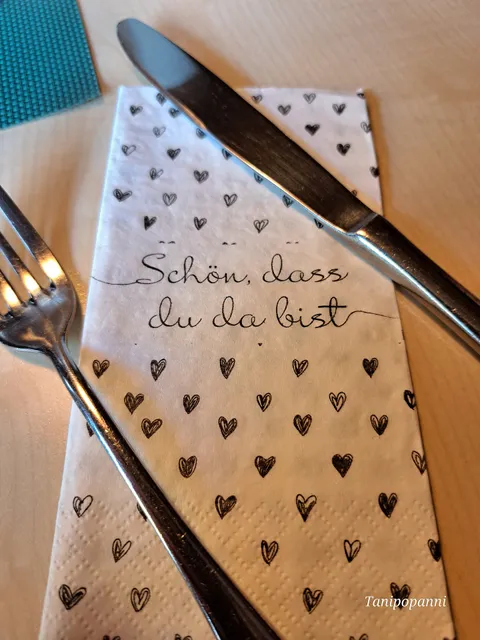 Schön, dass
du da bist
Tanipopanni